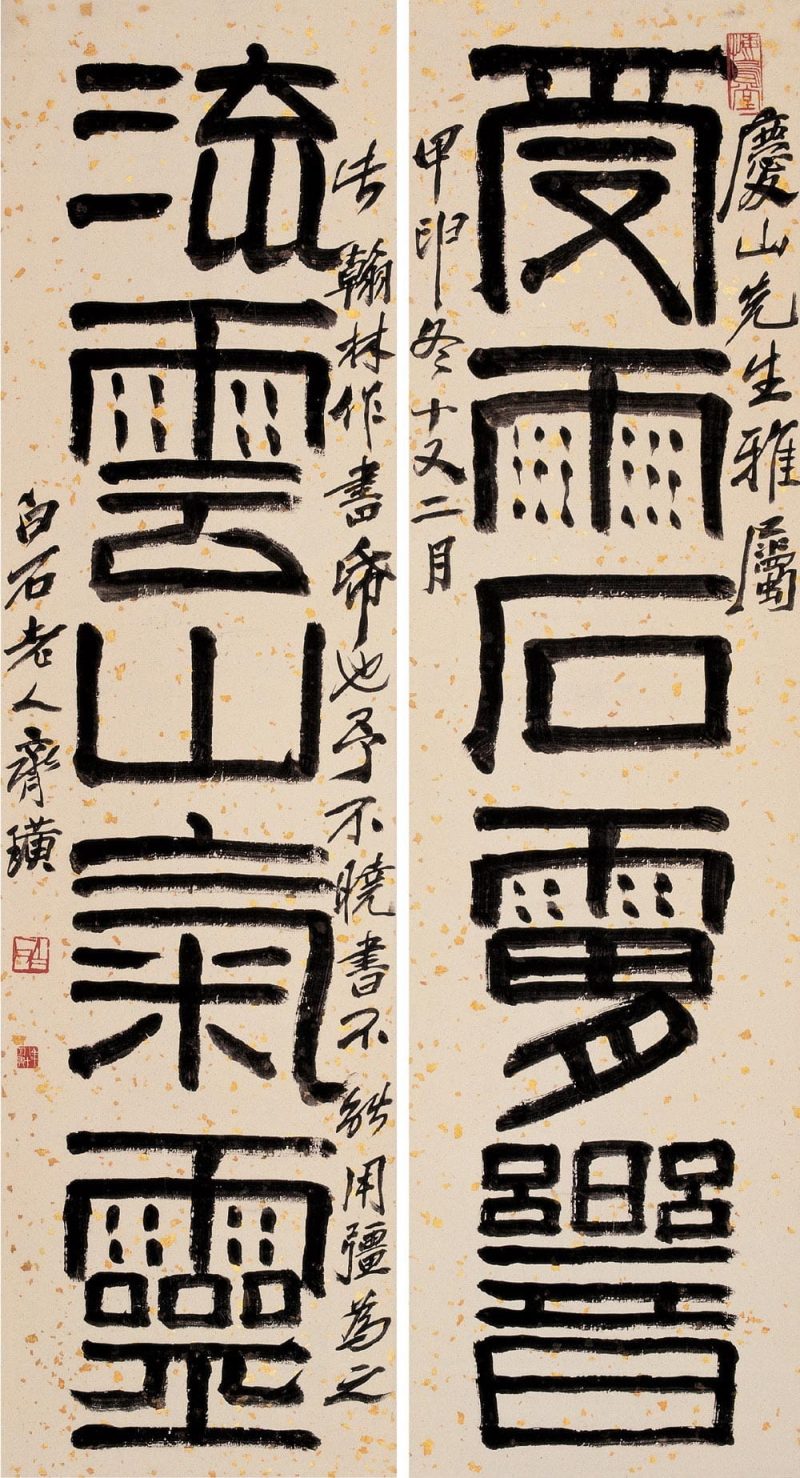 慶山先生雅屬
受雨石響
甲申冬十又二月
翰林作書也予不曉書不能用彊為之
流雲山氣靈
白石老人齊璜
悔烏堂
白石